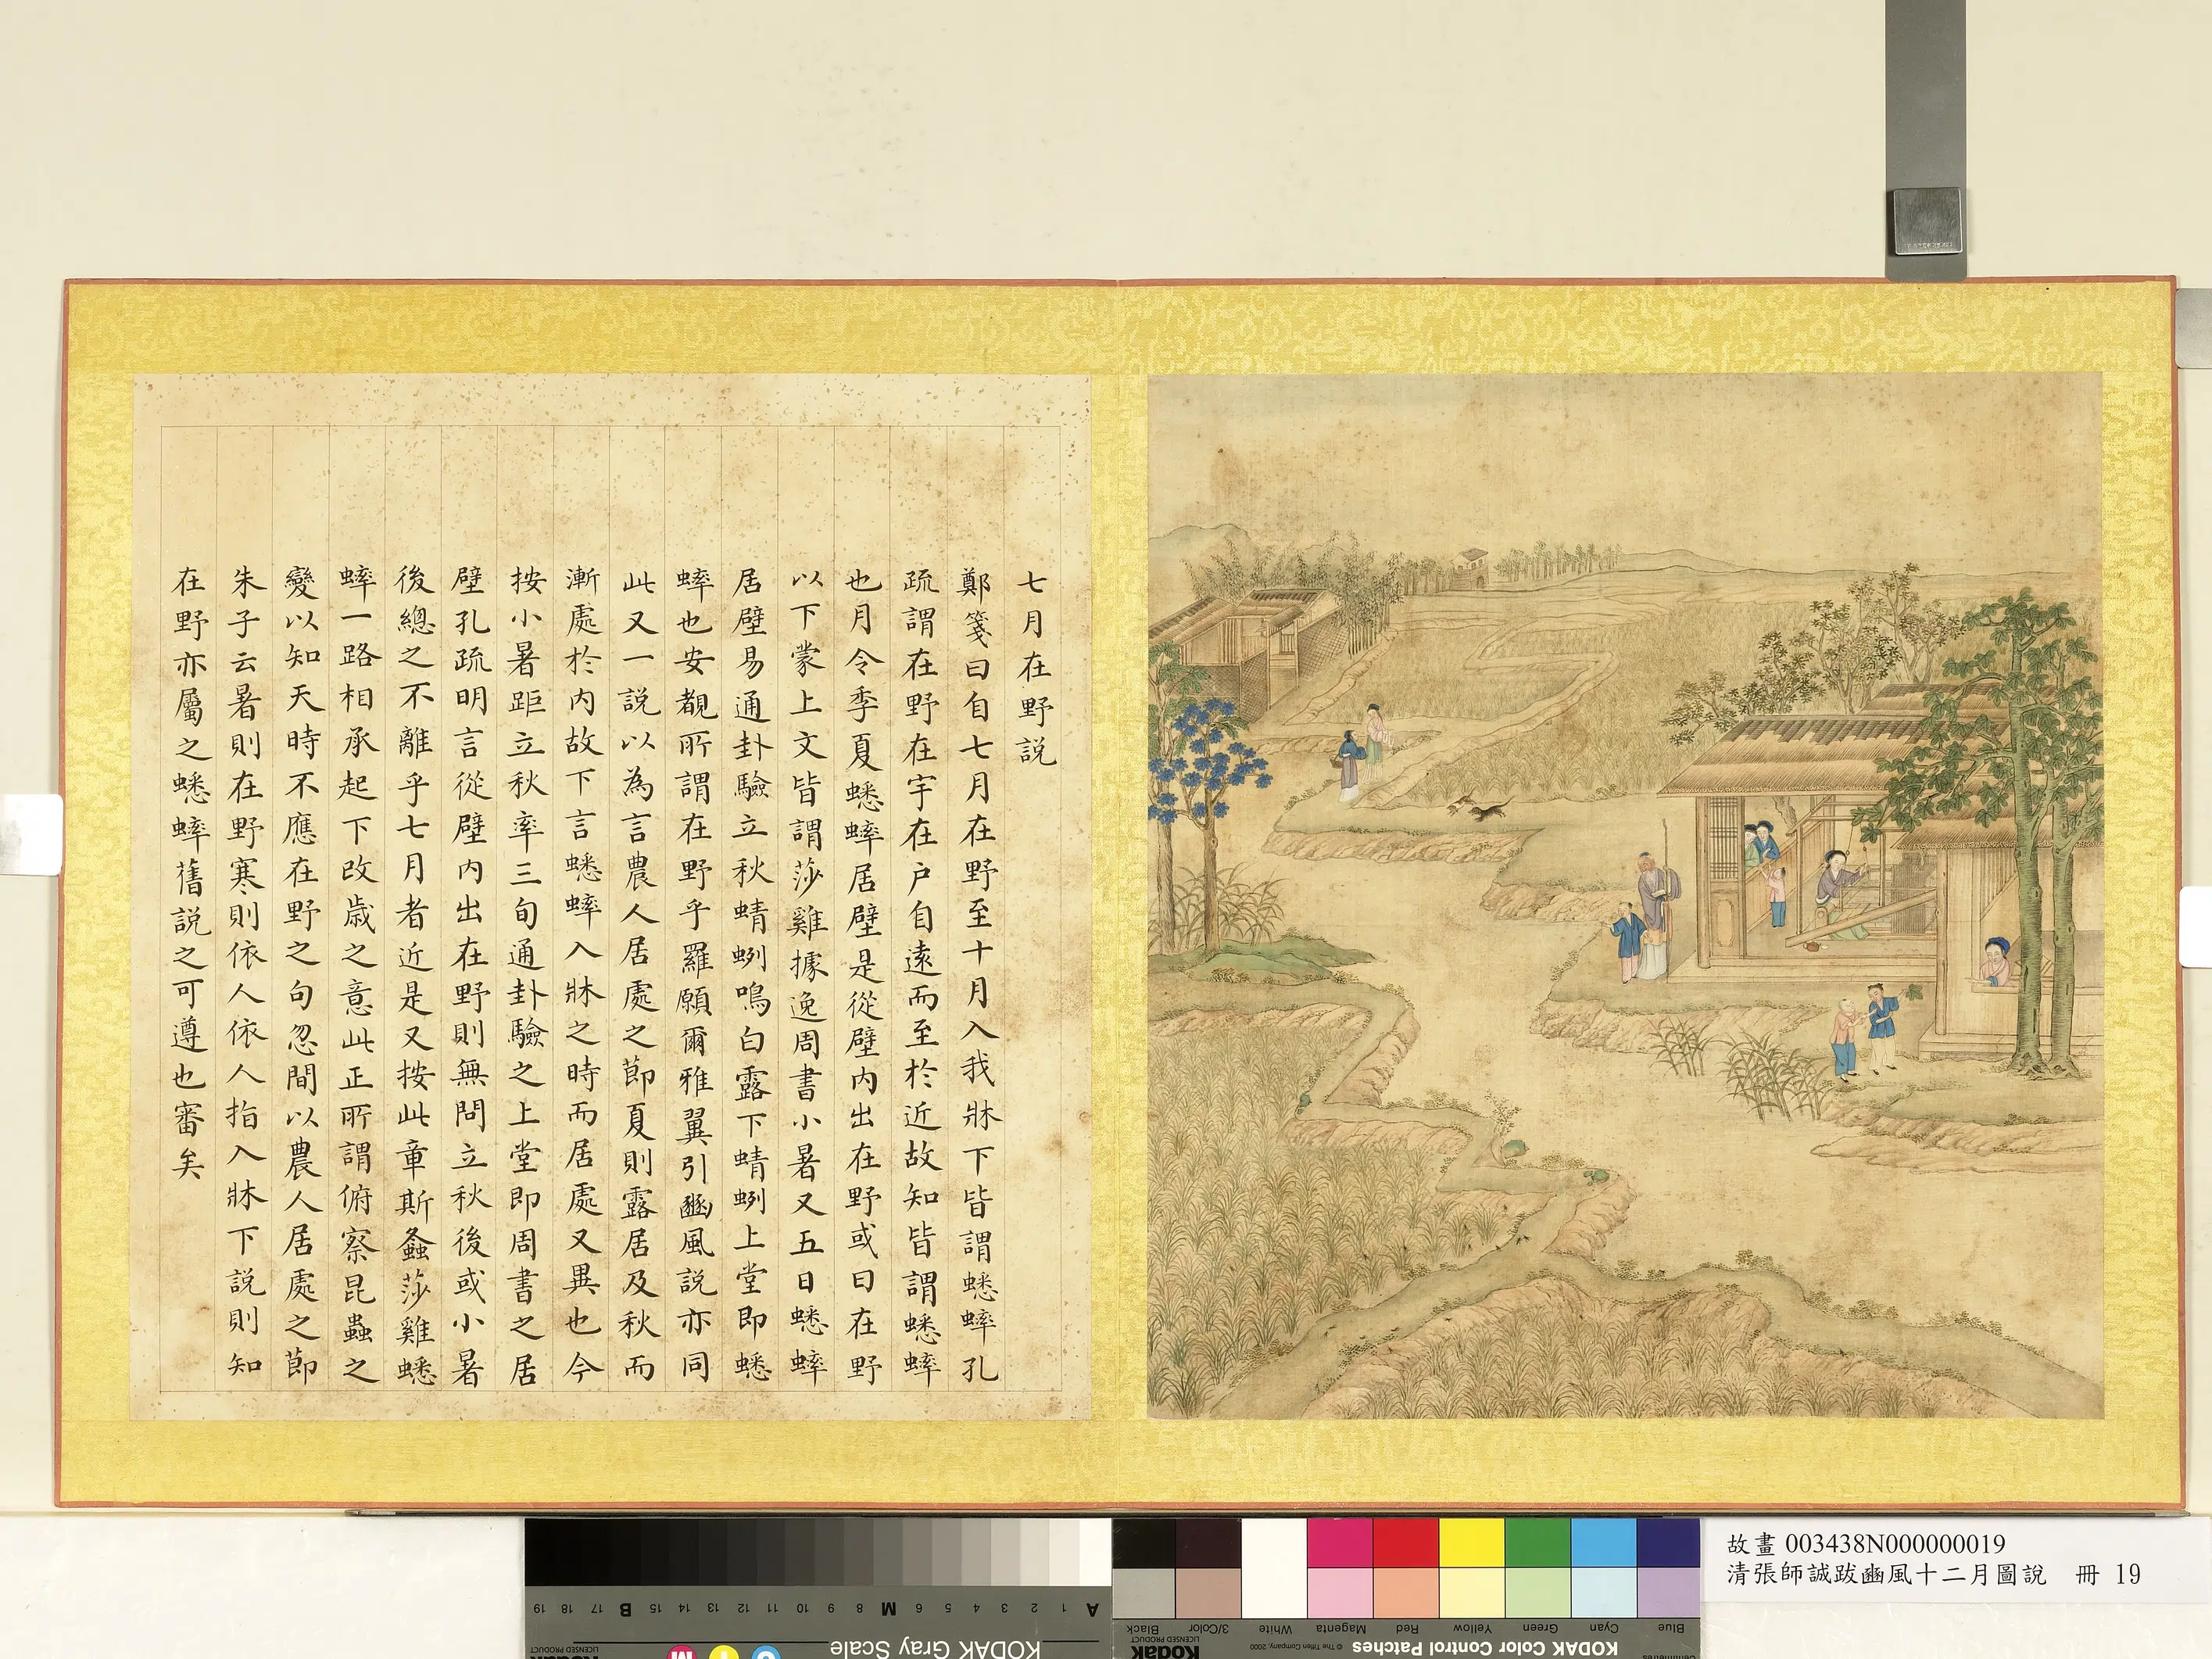 七月在野説
鄭箋曰自七月在野至十月入我牀下皆謂蟋蟀孔
疏謂在野在宇在户自遠而至於近故知皆謂蟋蟀
也月令季夏蟋蟀居壁是從壁内出在野或曰在野
以下蒙上文皆謂莎雞據逸周書小暑又五日蟋蟀
居壁易通卦驗立秋蜻蛚鳴白露下蜻蛚上堂即蟋
蟀也安覩所謂在野乎羅願爾雅翼引豳風説亦同
此又一説以為言農人居處之節夏則露居及秋而
漸處於内故下言蟋蟀入牀之時而居處又異也今
按小暑距立秋率三旬通卦驗之上堂即周書之居
壁孔疏明言從壁内出在野則無問立秋後或小暑
後總之不離乎七月者近是又按此章斯螽莎雞蟋
蟀一路相承起下改歲之意此正所謂俯察昆蟲之
變以知天時不應在野之句忽間以農人居處之節
朱子云暑則在野寒則依人依人指入牀下説則知
在野亦屬之蟋蟀舊説之可遵也審矣
故畫 003438N000000019
清張師誠跋豳風十二月圖說 冊 19
KODAK Gray Scale
A 1 2 3 4 5 6 M 8 9 10 11 12 13 14 15 B 17 18 19
KODAK Color Control Patches
© The Tiffen Company, 2000
Kodak
LICENSED PRODUCT
Blue Cyan Green Yellow Red Magenta White 3/Color Black